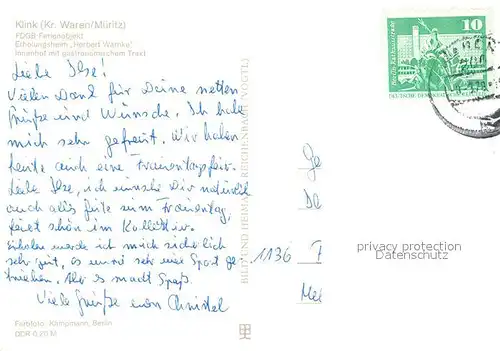 Klink (Kr. Waren/Müritz)
FDGB-Ferienobjekt
Erholungsheim „Herbert Warnke"
Innenhof mit gastronomischem Trakt
Liebe Ilse!
Vielen Dank für Deine netten
Grüße und Wünsche. Ich habe
mich sehr gefreut. Wir haben
heute auch eine Frauentagsfeier.
Liebe Ilse, ich wünsche Dir natürlich
auch alles Gute zum Frauentag,
feiert schön im Kollektiv.
Erholen werde ich mich sicherlich
sehr gut, es wird sehr viel Sport ge-
trieben. Aber es macht Spaß.
Viele Grüße von Christel
Farbfoto: Kämpmann, Berlin
DDR 0,20 M
BILD UND HEIMAT REICHENBACH (VOGTL)
10
Berlin, Rathausstraße
DEUTSCHE DEMOKRATISCHE
1136
privacy protection
Datenschutz